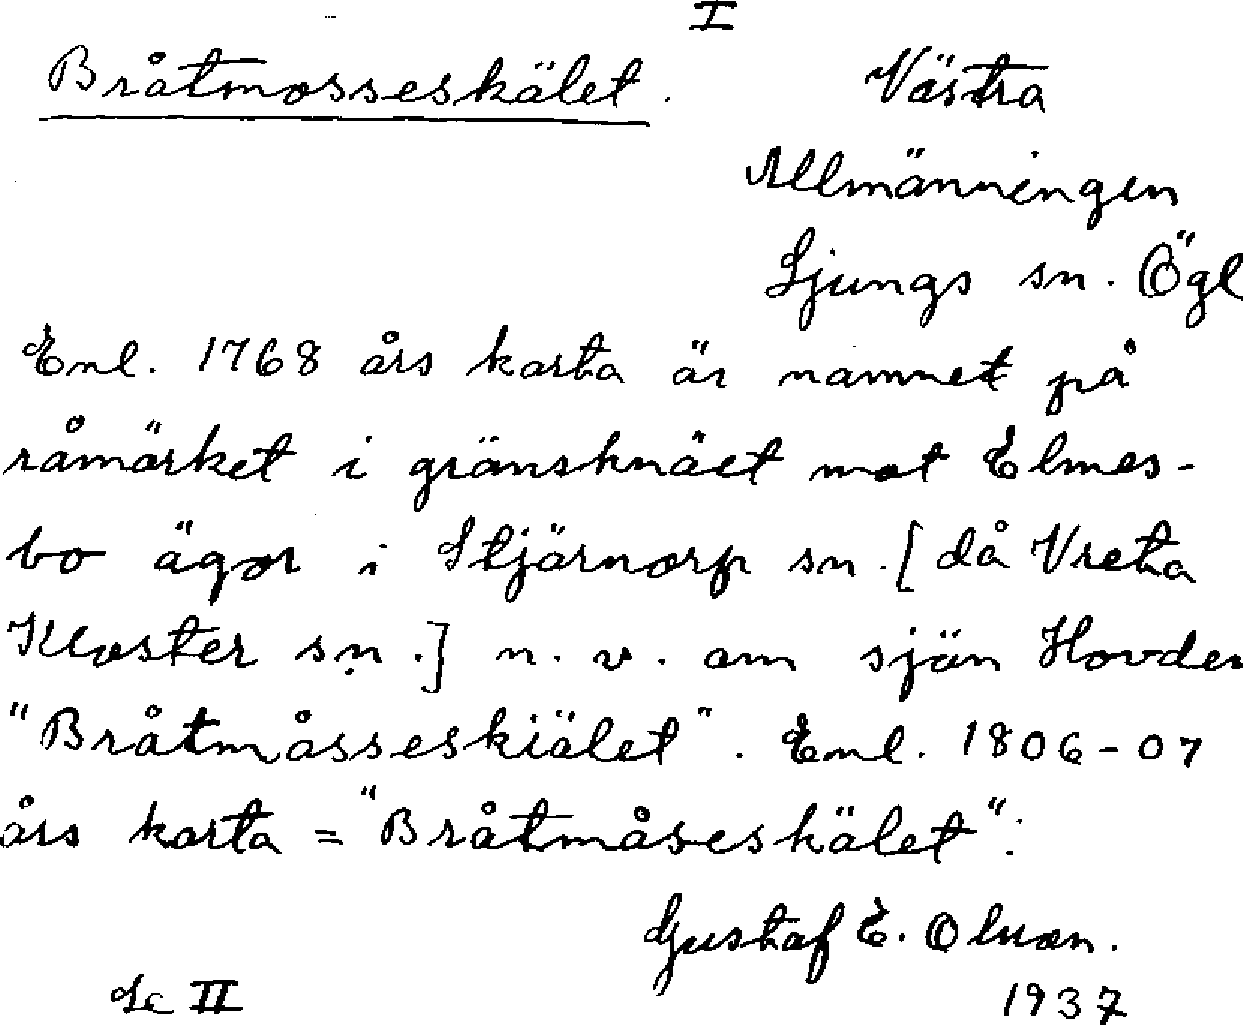 I
Bråtmosseskälet. Västra
Allmänningen
Ljungs sn. Ögl
Enl. 1768 års karta är namnet på
råmärket i gränsknäet mot Elmes-
bo ägor i Stjärnorp sn. [då Vreta
Kloster sn.] n. v. om sjön Hovden
"Bråtmåsseskiälet". Enl. 1806-07
års karta = "Bråtmåseskälet".
Gustaf E. Olsson.
II 1937